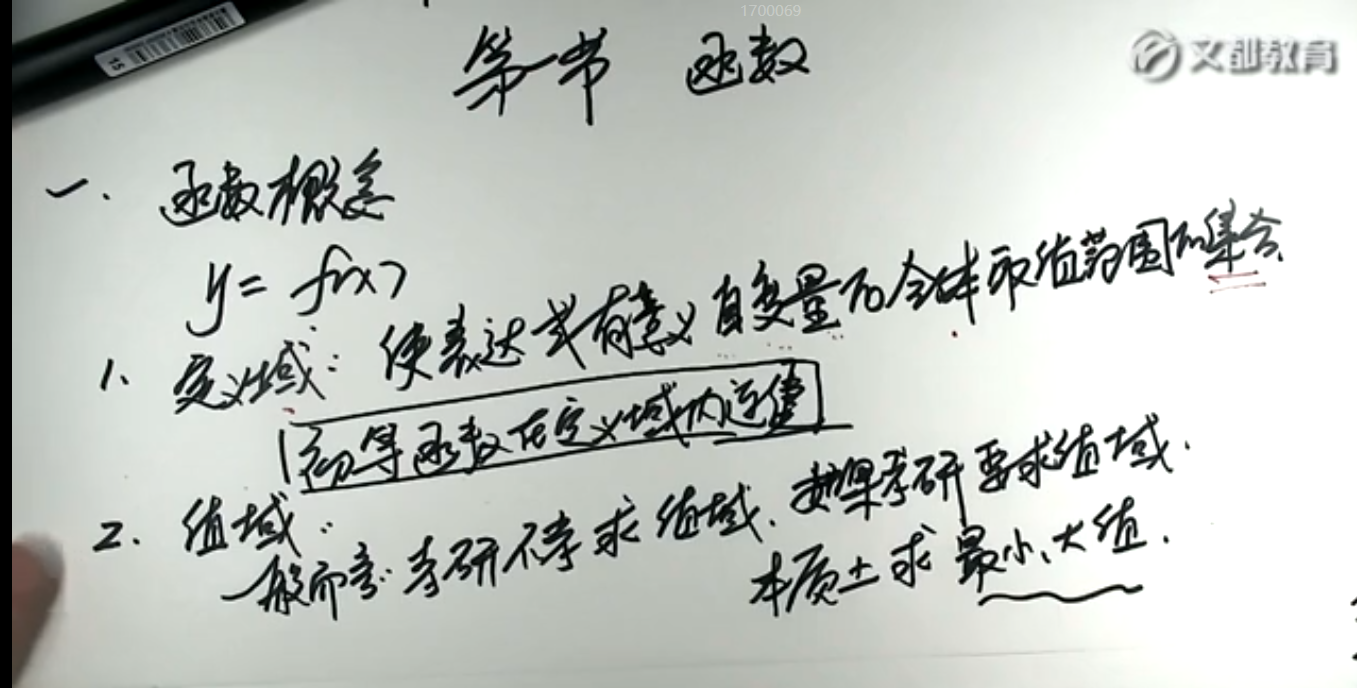 1700069
文都教育
15
第一节 函数
一. 函数概念
y = f(x)
1. 定义域: 使表达式有意义自变量的全体取值范围的集合.
初等函数在定义域内连续
2. 值域:
一般而言: 考研不考求值域. 如果考研要求值域.
本质上求最小、大值.